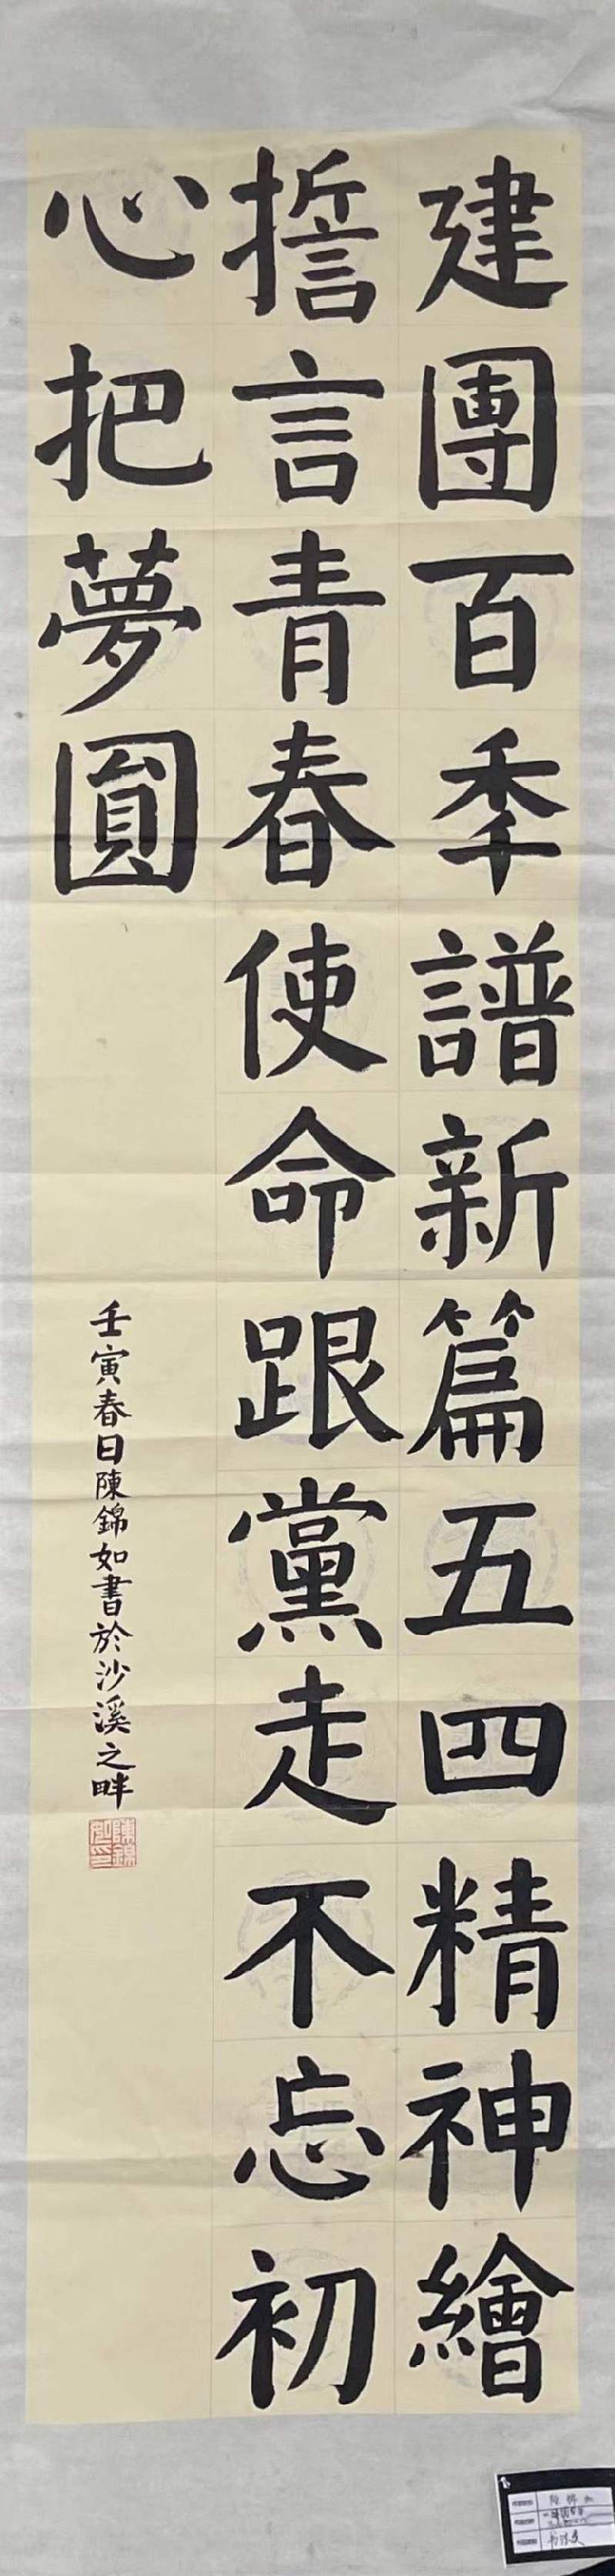 建團百季譜新篇五四精神繪
誓言青春使命跟黨走不忘初
心把夢圓
壬寅春日陳錦如書於沙溪之畔